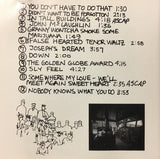 ① YOU DON'T HAVE TO DO THAT 3:30
② DIDN'T WANT TO BE FORGOTTEN 2:13
③ IN TALL BUILDINGS 4:18 ASCAP
④ JOHN McLAUGHLIN 3:30
⑤ GRANNY WONTCHA SMOKE SOME
MARIJUANA 1:40
⑥ FALSE HEARTED TENOR WALTZ 2:52
⑦ JOSEPH'S DREAM 3:57
⑧ DOWN 2:00
⑨ THE GOLDEN GLOBE AWARD 4:15
⑩ SLY FEEL 4:27
⑪ SOMEWHERE MY LOVE - WE'LL
MEET AGAIN SWEET HEART 3:25 ASCAP
⑫ NOBODY KNOWS WHAT YOU DO 3:53